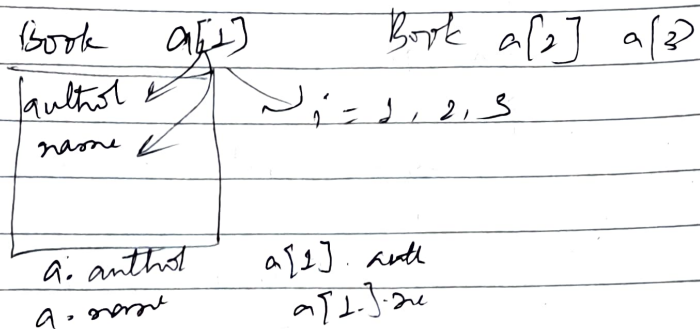 Book a[1] Book a[2] a[3]
author
i = 1, 2, 3
name
a. author a[1]. auth
a. name a[1.].